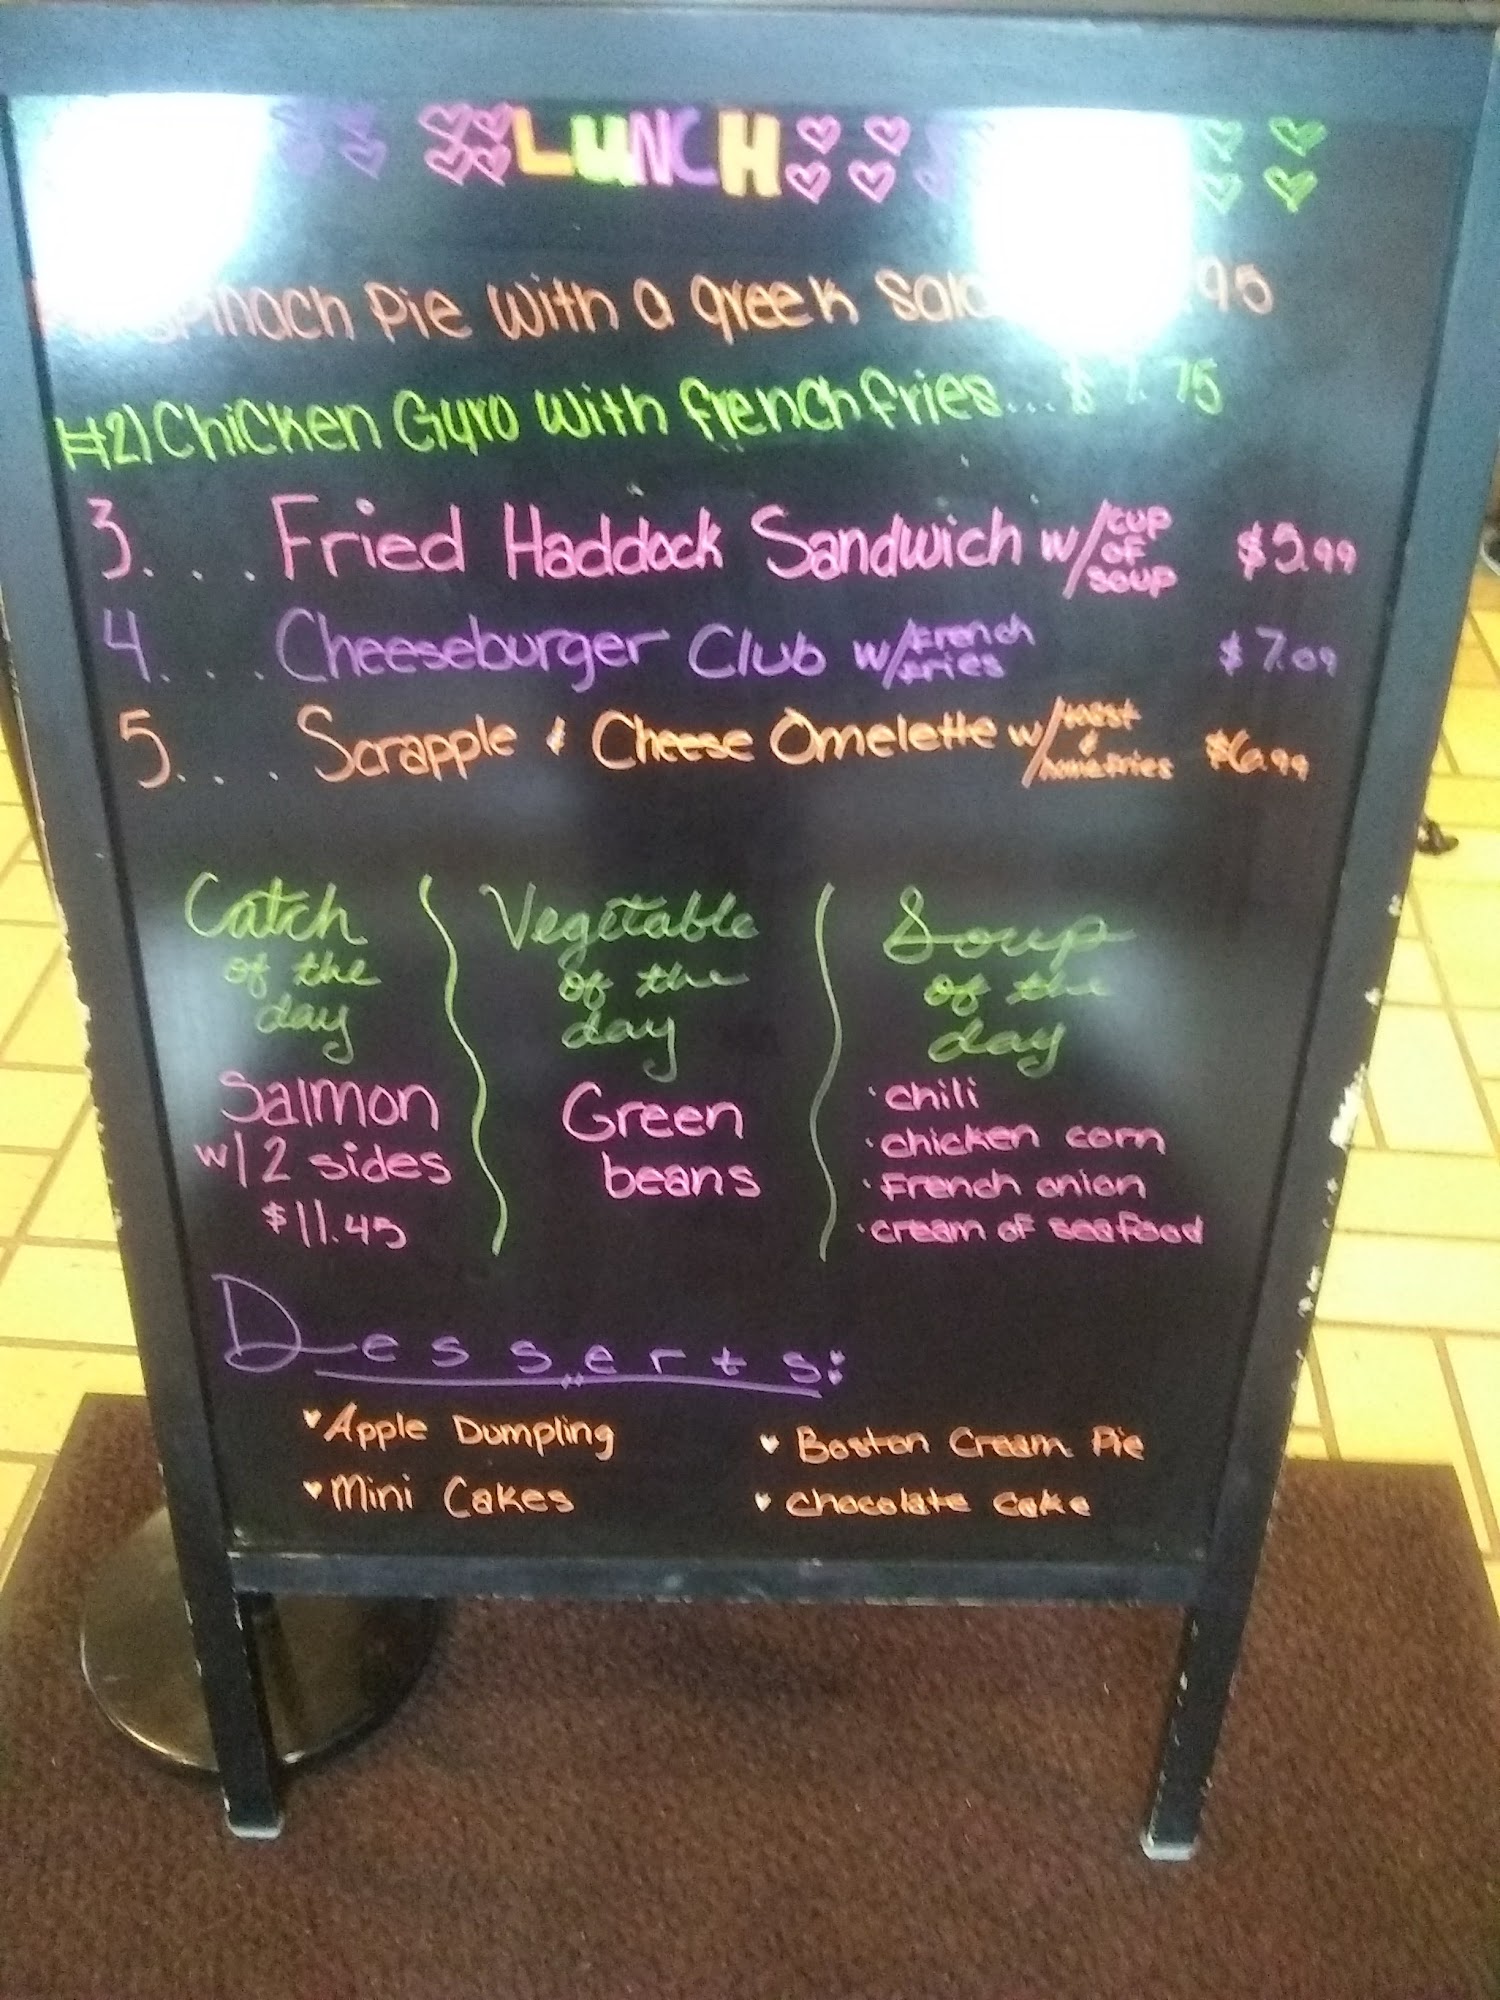 LUNCH
Spinach Pie with a greek 95
#2) Chicken Gyro with french fries... $ 7.75
3. . . . Fried Haddock Sandwich w/ cup of soup $5.99
4. . . . Cheeseburger Club w/ french fries $7.09
5. . . . Scrapple & Cheese Omelette w/ toast & homefries $6.99
Catch
of the
day
Salmon
w/ 2 sides
$11.45
Vegetable
of the
day
Green
beans
Soup
of the
day
· chili
· chicken corn
· French onion
· cream of seafood
Desserts:
♥ Apple Dumpling
♥ Mini Cakes
♥ Boston Cream Pie
♥ Chocolate Cake